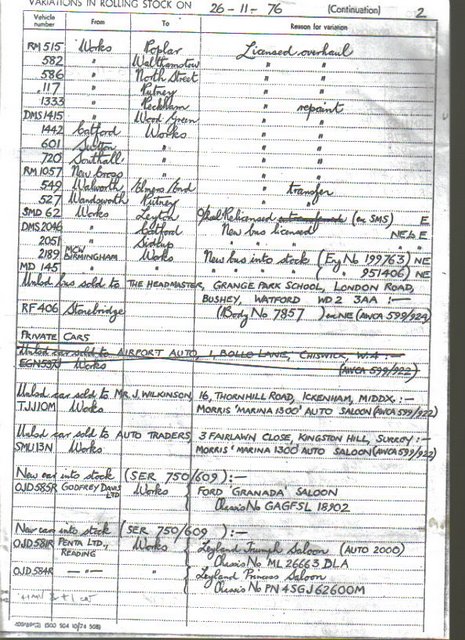 VARIATIONS IN ROLLING STOCK ON 26-11-76 (Continuation) 2
Vehicle number From To Reason for variation
RM 515 Works Poplar Licensed overhaul
582 " Walthamstow " "
586 " North Street " "
117 " Putney " "
1333 " Peckham " repaint
DMS 1415 " Wood Green " "
1442 Catford Works " "
601 Sutton " " "
720 Southall " " "
RM 1057 New Cross " " "
549 Walworth Elmers End " transfer
527 Wandsworth Putney " "
SMD 62 Works Leyton Relicensed (ex SMS) E
DMS 2046 " Catford New bus licensed NE to E
2051 " Sidcup " " " " "
2189 MCW BIRMINGHAM Works New bus into stock (Eng No 199763) NE
MD 145 " " " " " " ( " 951406) NE
Unlsd bus sold to THE HEADMASTER, GRANGE PARK SCHOOL, LONDON ROAD,
BUSHEY, WATFORD WD2 3AA :—
RF 406 Stonebridge (Body No 7857) NE (AWCA 599/924)
PRIVATE CARS
Unlsd car sold to AIRPORT AUTO, 1, BOLLO LANE, CHISWICK, W.4 :—
Works (AWCA 599/922)
Unlsd car sold to MR. J. WILKINSON, 16, THORNHILL ROAD, ICKENHAM, MIDDX :—
TJJ 10M Works MORRIS 'MARINA 1300' AUTO SALOON (AWCA 599/922)
Unlsd car sold to AUTO TRADERS, 3 FAIRLAWN CLOSE, KINGSTON HILL, SURREY :—
SMU 13N Works MORRIS 'MARINA 1300' AUTO SALOON (AWCA 599/922)
New car into stock (SER 750/609) :—
OJD 585R GODFREY DAVIS LTD Works FORD 'GRANADA' SALOON
Chassis No GAGFSL 18902
New car into stock (SER 750/609) :—
OJD 581R PENTA LTD., READING Works Leyland Triumph Saloon (AUTO 2000)
Chassis No ML 26663 DLA
OJD 584R — " — " Leyland Princess Saloon
Chassis No PN4SGJ 62600M